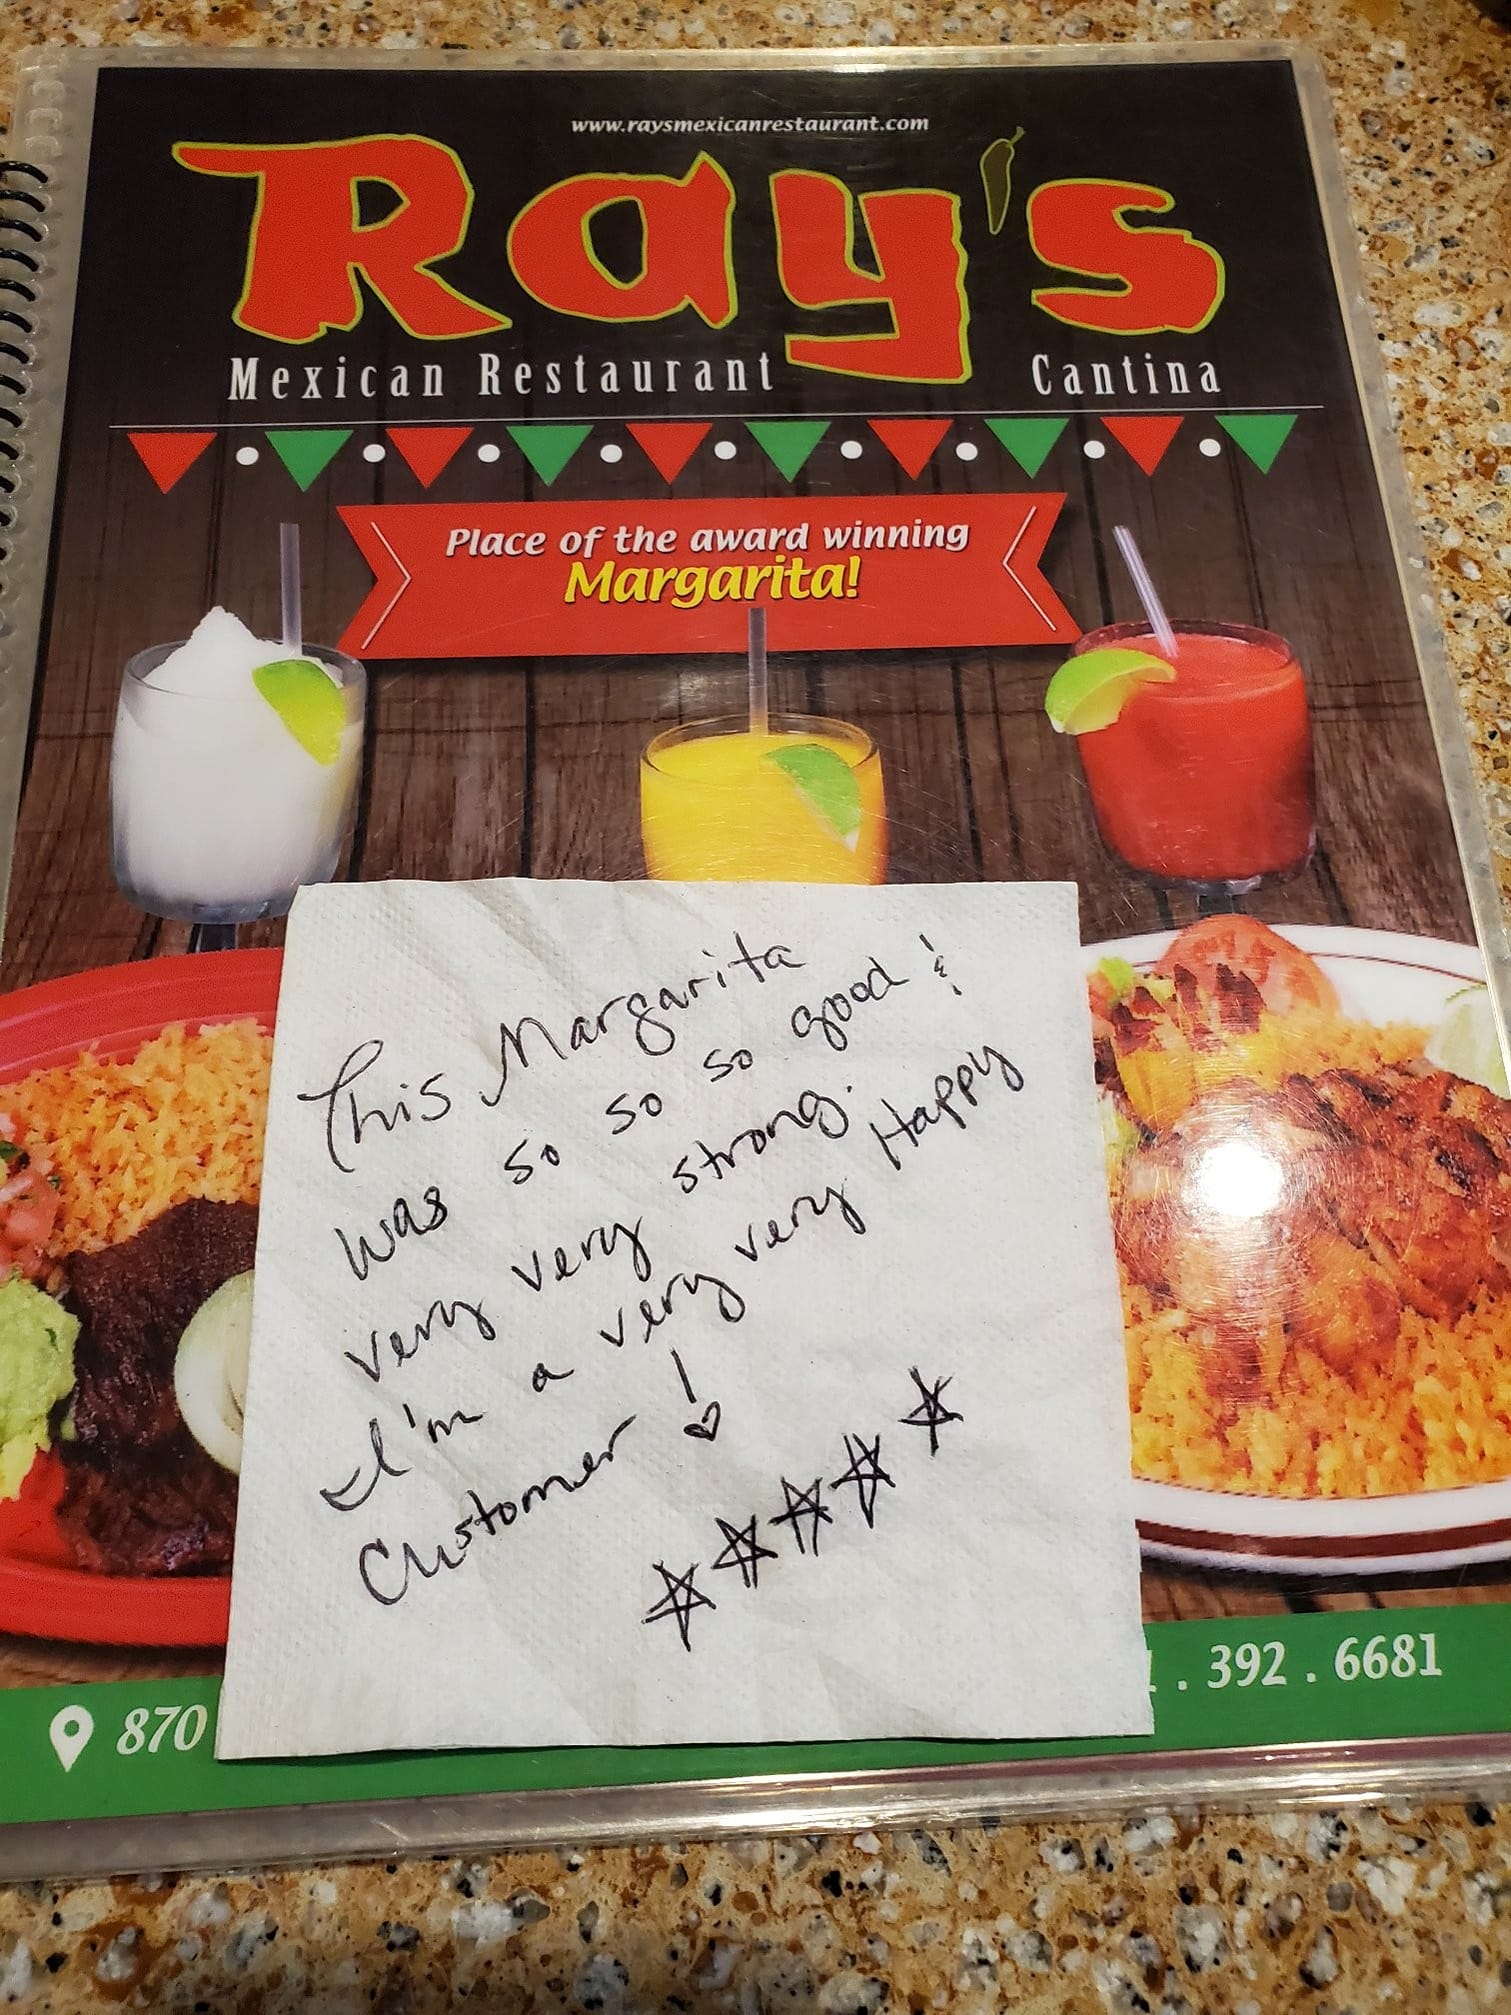 www.raysmexicanrestaurant.com
Ray's
Mexican Restaurant Cantina
Place of the award winning
Margarita!
This Margarita
was so so so good &
very very strong.
I'm a very very Happy
Customer!
870
. 392 . 6681